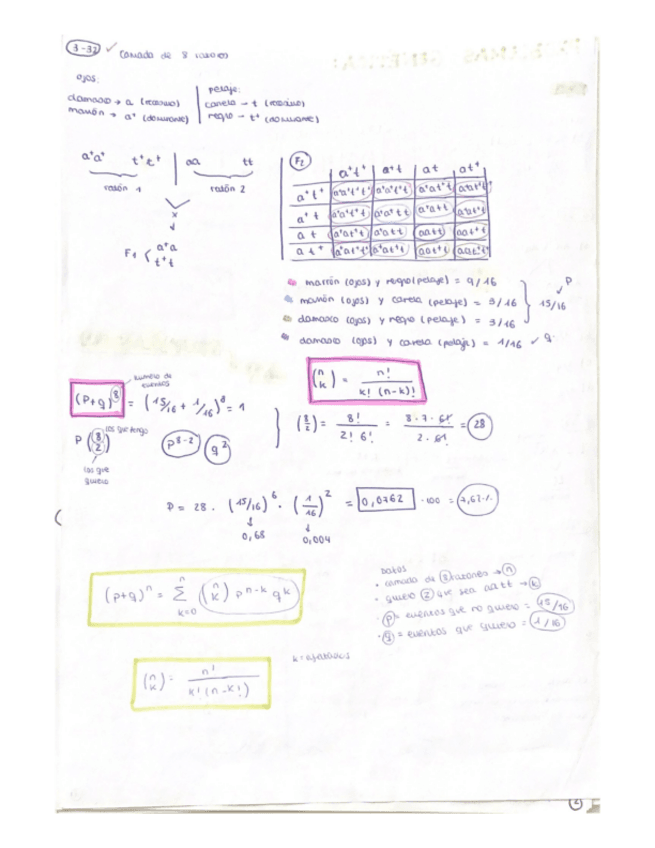 3-32 ✓ Camada de 8 ratones
ojos:
damasco → a (recesivo)
marrón → a⁺ (dominante)
pelaje:
canela → t (recesivo)
negro → t⁺ (dominante)
a⁺a⁺ t⁺t⁺ | aa tt
ratón 1 ratón 2
x
F1 < a⁺a
t⁺t
F2
a⁺t⁺ a⁺t at at⁺
a⁺t⁺ a⁺a⁺t⁺t⁺ a⁺a⁺t⁺t a⁺at⁺t a⁺at⁺t⁺
a⁺t a⁺a⁺t⁺t a⁺a⁺tt a⁺att a⁺at⁺t
at a⁺at⁺t a⁺att aatt aat⁺t
at⁺ a⁺at⁺t⁺ a⁺at⁺t aat⁺t aat⁺t⁺
marrón (ojos) y negro (pelaje) = 9/16
marrón (ojos) y canela (pelaje) = 3/16
damasco (ojos) y negro (pelaje) = 3/16
} 15/16
p
damasco (ojos) y canela (pelaje) = 1/16 ✓ q
número de eventos
(p+q)⁸ = (15/16 + 1/16)⁸ = 1
P (8 2) los que tengo
los que quiero
p⁸⁻² q²
(n k) = n! / k! (n-k)!
(8 2) = 8! / 2! 6! = 8·7·6! / 2·6! = 28
P = 28 · (15/16)⁶ · (1/16)² = 0,0762 ·100 = 7,62%
0,68 0,004
(p+q)ⁿ = Σ n k=0 (n k) pⁿ⁻ᵏ qᵏ
Datos
• camada de 8 ratones → n
• quiero 2 que sea aatt → k
• p = eventos que no quiero = 15/16
• q = eventos que quiero = 1/16
(n k) = n! / k! (n-k!)
2